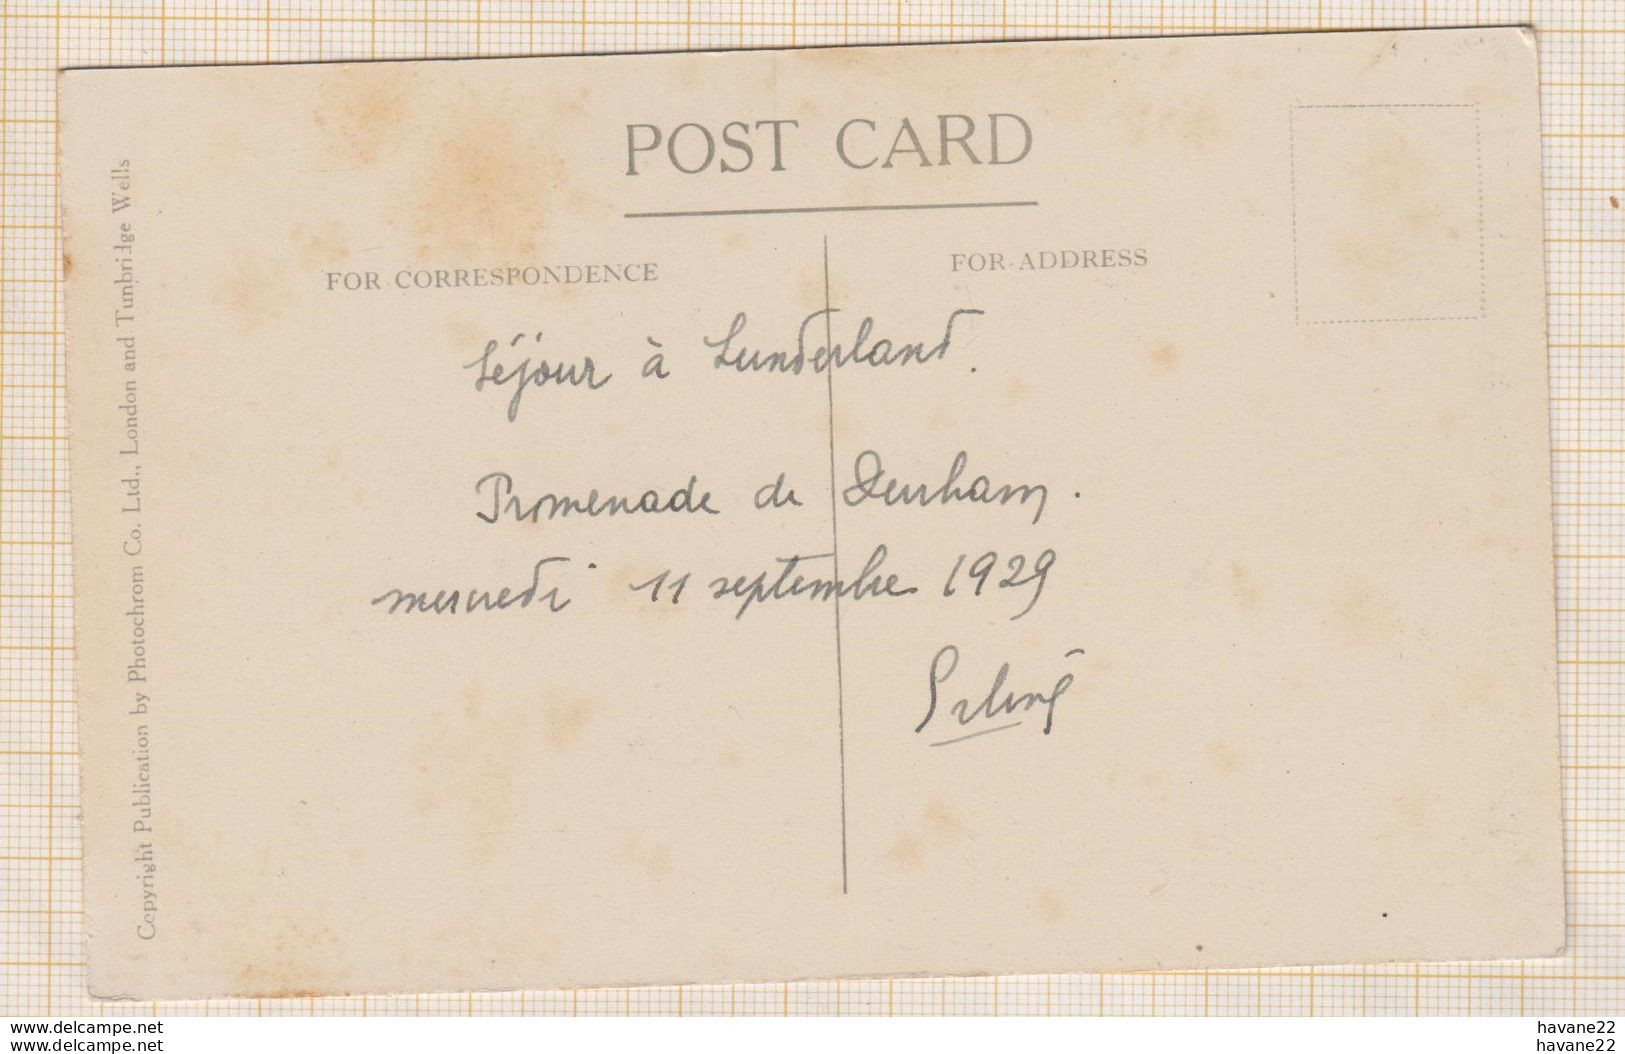 POST CARD
FOR CORRESPONDENCE
FOR ADDRESS
Séjour à Sunderland.
Promenade de Durham.
mercredi 11 septembre 1929
Copyright Publication by Photochrom Co. Ltd., London and Tunbridge Wells
www.delcampe.net
www.delcampe.net
havane22
havane22